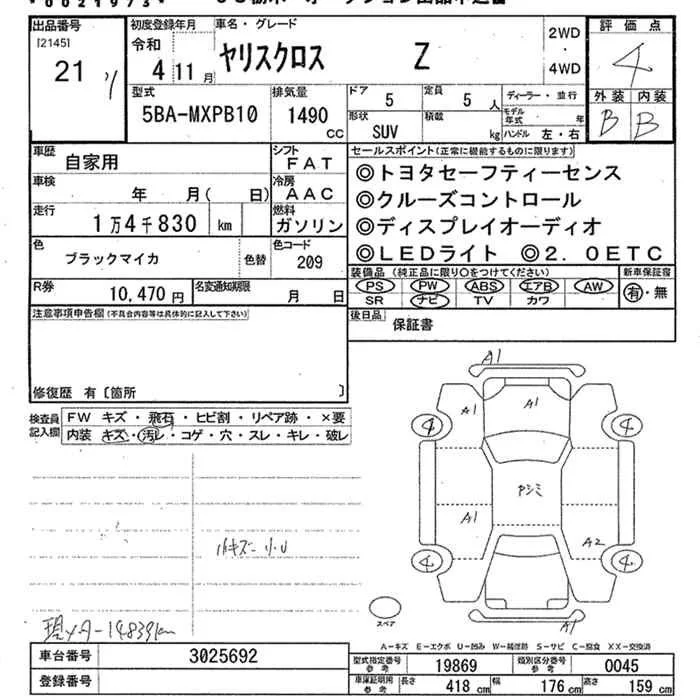 *0021973*
出品番号
[2145]
21
初度登録年月
令和
4 11月
車名・グレード
ヤリスクロス Z
2WD
・
4WD
評価点
4
外装 内装
B B
型式
5BA-MXPB10
排気量
1490
CC
ドア
5
定員
5 人
形状
SUV
積載
kg
ディーラー・並行
モデル年式 年
ハンドル 左・右
車歴
自家用
シフト
FAT
車検
年 月( 日)
冷房
AAC
走行
1万4千830 km
燃料
ガソリン
色
ブラックマイカ
色替
色コード
209
R券
10,470円
名変通知期限
月 日
セールスポイント(正常に機能するものに限ります)
◎トヨタセーフティーセンス
◎クルーズコントロール
◎ディスプレイオーディオ
◎LEDライト ◎2.0ETC
装備品 (純正品に限り○をつけてください)
PS PW ABS エアB AW
SR ナビ TV カワ
新車保証書
有・無
後日品
保証書
注意事項申告欄(不具合内容等は具体的に記入して下さい)
修復歴 有〔箇所 〕
検査員
記入欄
FW キズ・飛石・ヒビ割・リペア跡・×要
内装 キズ・汚レ・コゲ・穴・スレ・キレ・破レ
小キズ小U
現メター14839km
A1
A1
A1
4
4
Pシミ
A1
A2
4
4
スペア
A1
A-キズ E-エクボ U-凹み W-補修跡 S-サビ C-腐食 XX-交換済
車台番号
3025692
登録番号
型式指定番号
参考
19869
類別区分番号
参考
0045
車庫証明用
参考
長さ
418 cm
幅
176 cm
高さ
159 cm